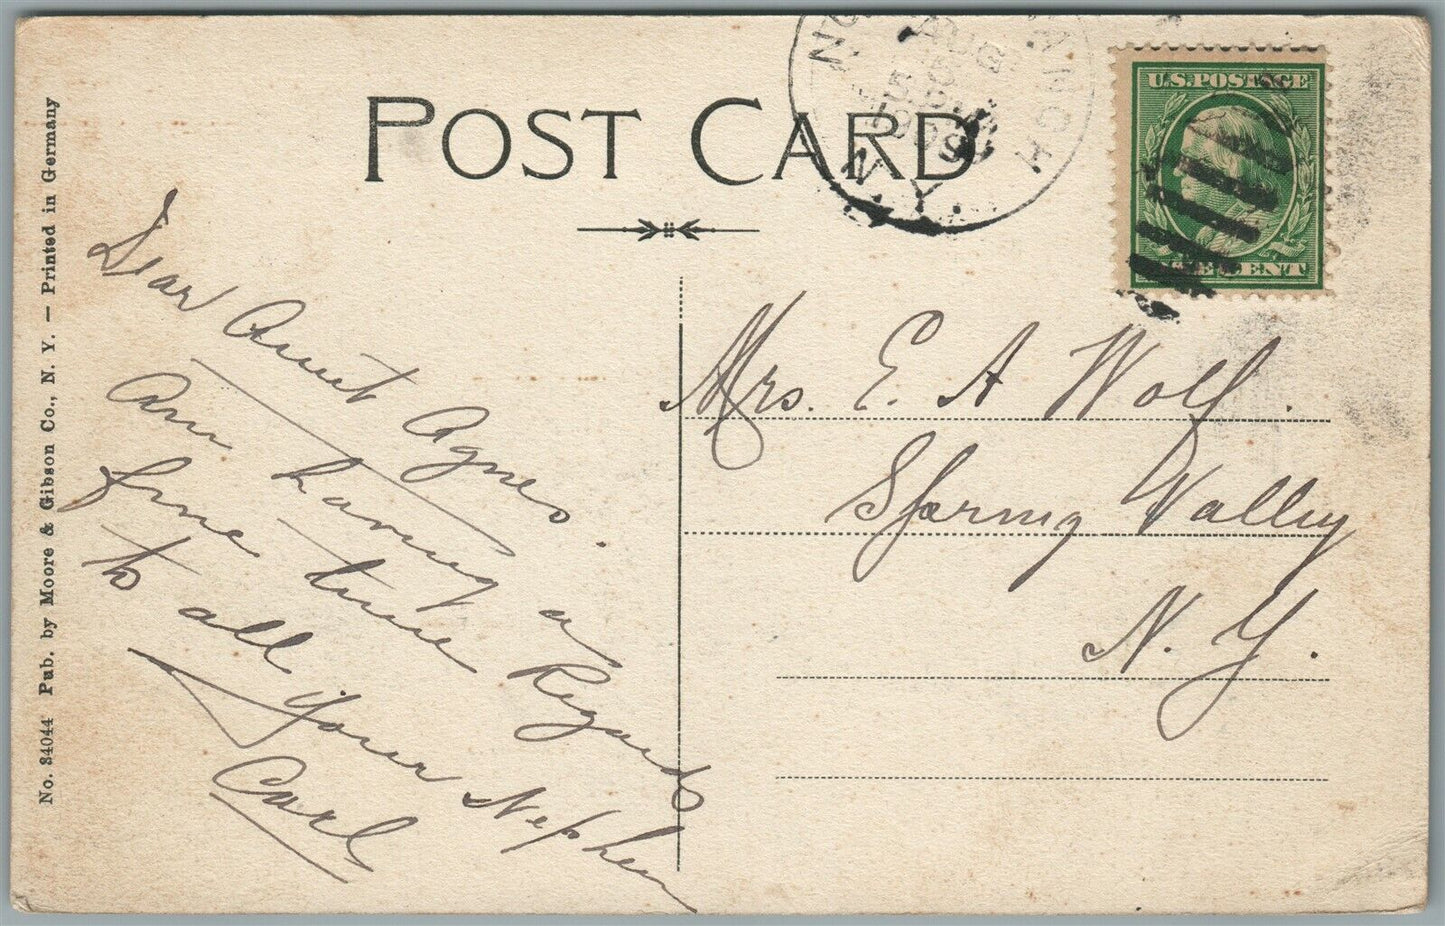 POST CARD
U.S. POSTAGE
AUG
5
1909
N.Y.
No. 34044 Pub. by Moore & Gibson Co., N. Y. — Printed in Germany
Dear Aunt Agnes.
Am having a
fine time Regards
to all Your Nephew
Carl
Mrs. E. A Wolf.
Spring Valley
N. Y.